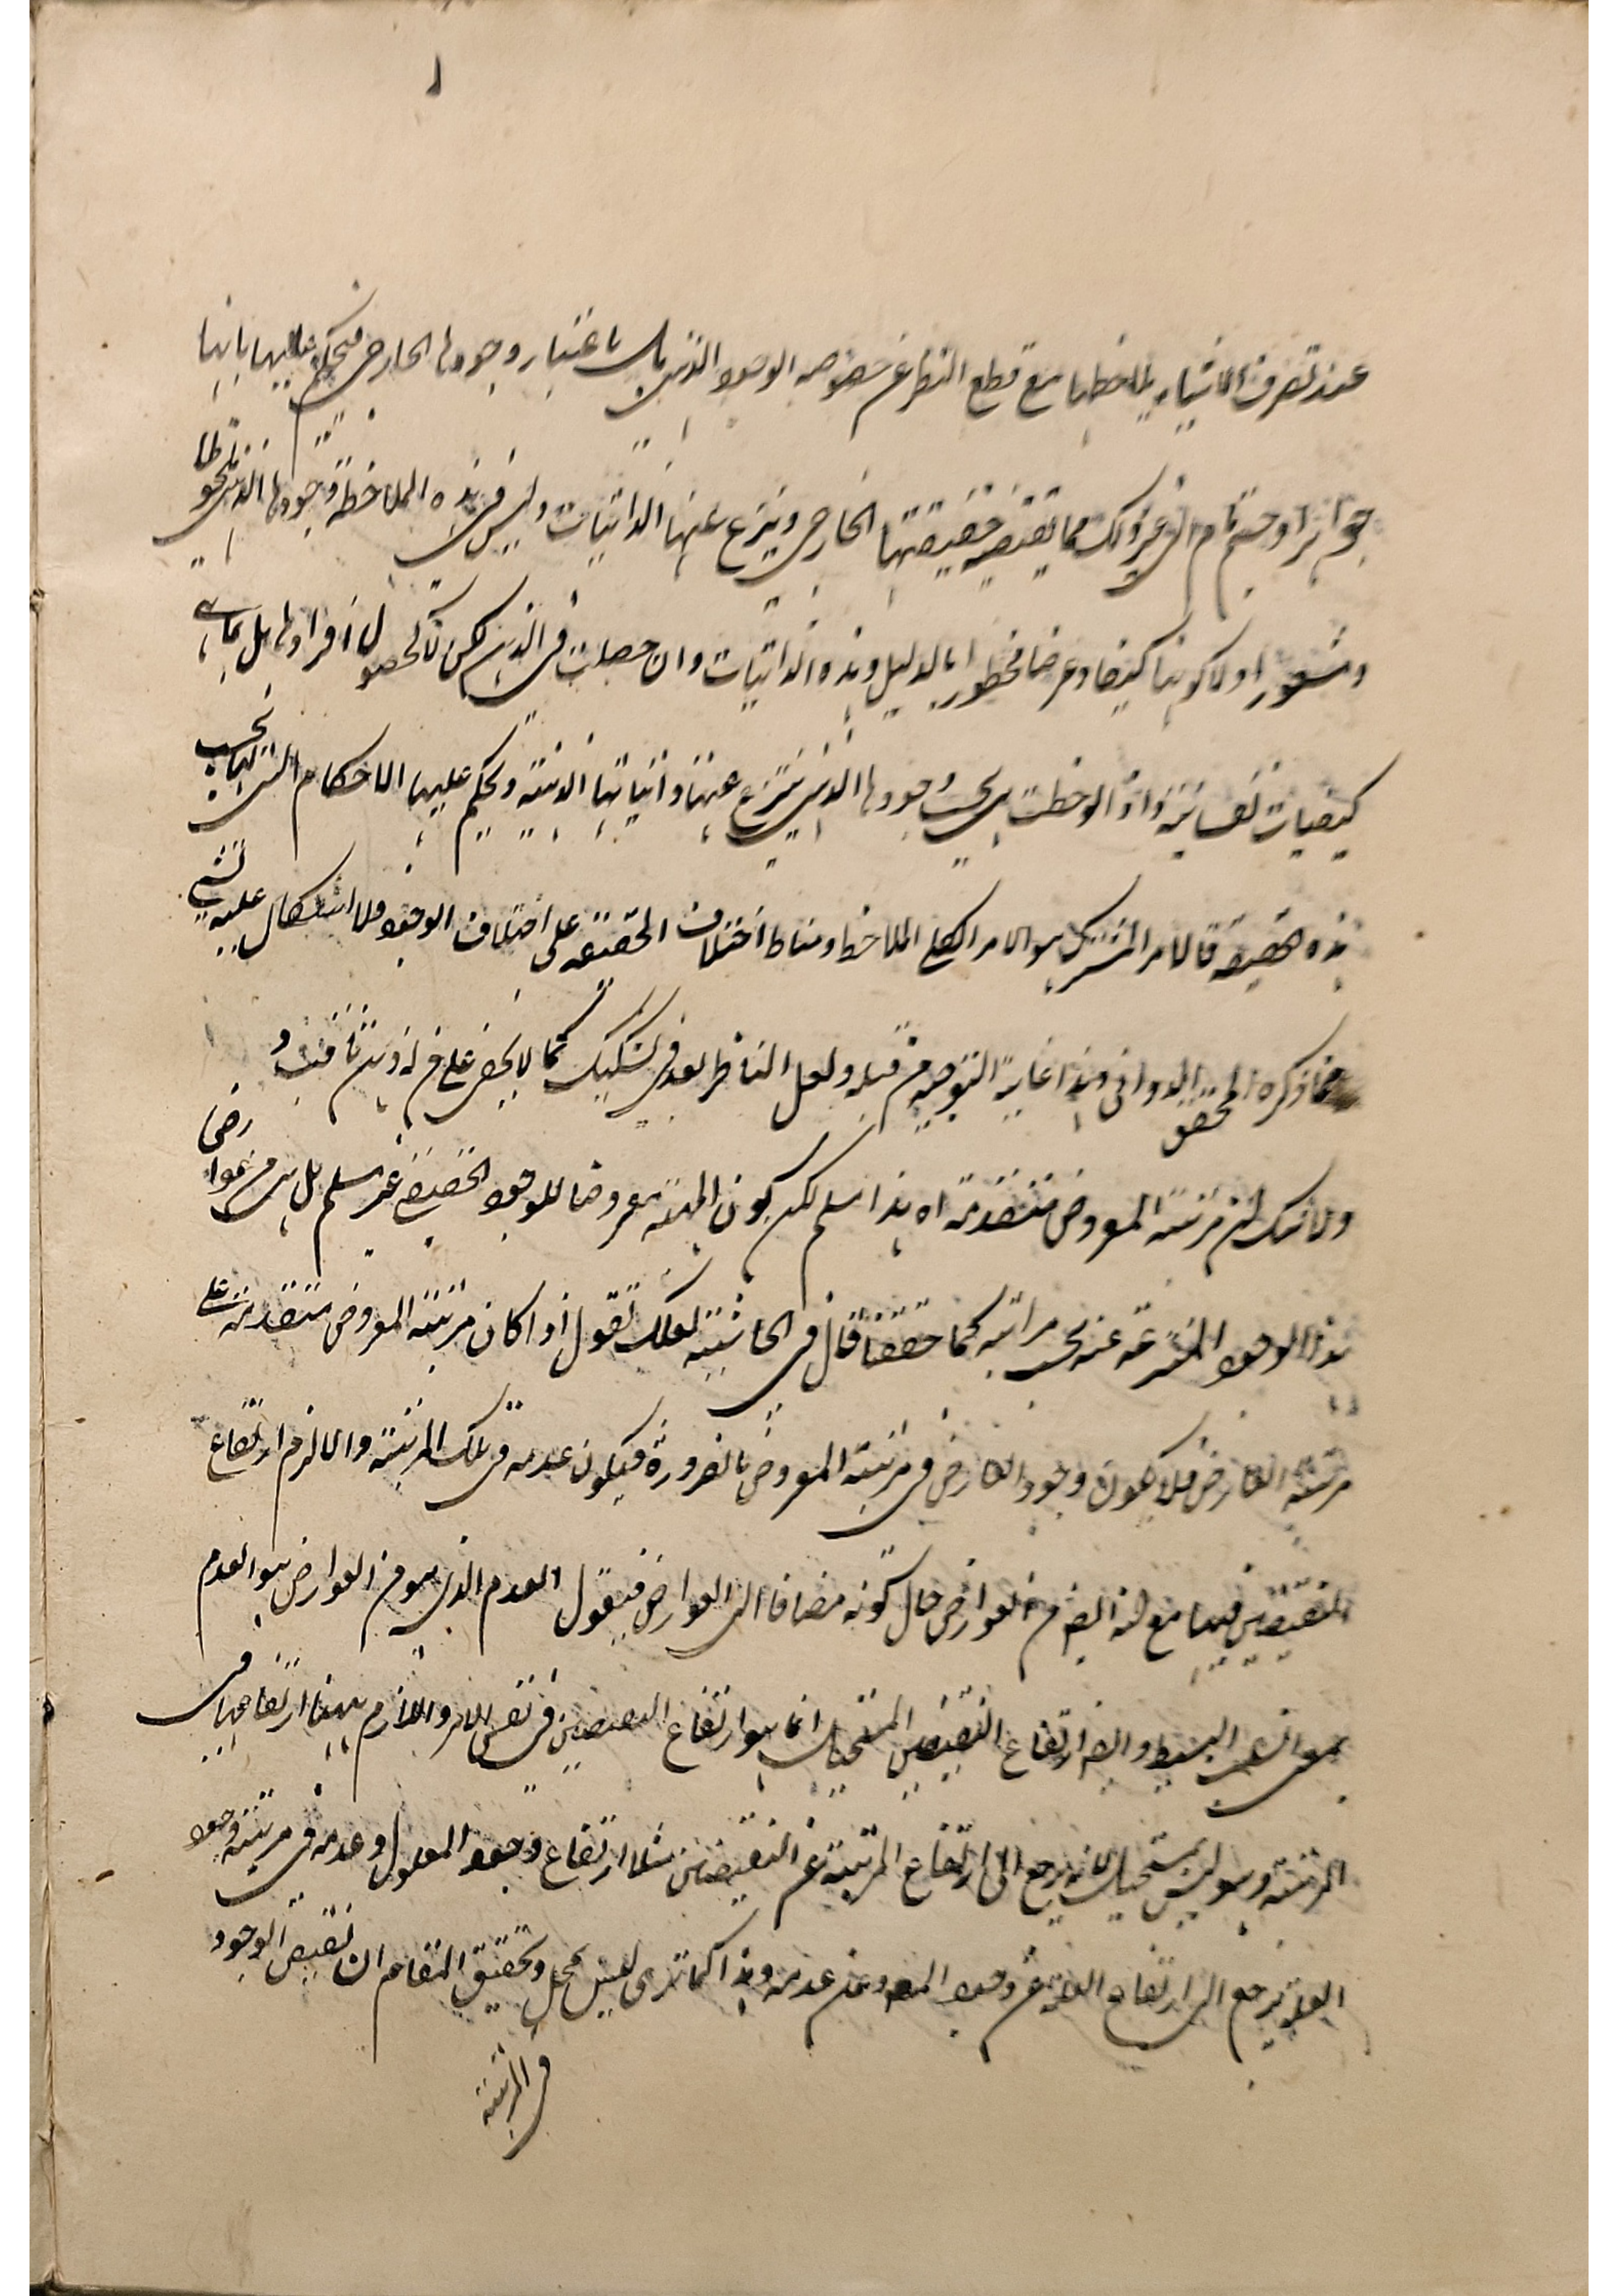 عند تصرف الاشياء يلاحظها مع قطع النظر عن خصوصه الوجود الذهني بل باعتبار وجودها الخارجي فيحكم عليها بانها
جواهر او جسم نام الى غير ذلك مما يقتضيه حقيقتها الخارجي وينتزع عنها الذاتيات وليس في هذه الملاحظة وجودها الذهني ملحوظا
ومشعورا ولا كونها كيفا وعرضا مخطورا بالدليل وهذه الذاتيات وان حصلت في الذهن لكن لا لحصول افرادها بل بما هي
كيفيات نفسانية واذا لوحظت بحسب وجودها الذهني ينتزع عنها ذاتياتها الذهنية ويحكم عليها الاحكام التي لها بحسب
هذه الحقيقة فالامر المشترك هو الامر الملاحظ ومناط اختلاف الحقيقة على اختلاف الوجود ولا اشكال عليه بشيء
مما ذكره المحقق الدواني وهذا غاية التوجيه من قبله ولعل الناظر بعد في تشكيك كما لا يخفى على من له ذهن ثاقب و
ولا شك ان مرتبة المعروض متقدمة اه هذا مسلم لكن كون المهية معروضا للوجود الحقيقي غير مسلم بل هي من عوارض
هذا الوجود المنتزعة عنه بحسب مراتبه كما حققنا قال في الحاشية لعلك تقول اذا كان مرتبة المعروض متقدمة على
مرتبة العارض فلا يكون وجود العارض في مرتبة المعروض بالضرورة فيكون عدمه في تلك المرتبة والا لزم ارتفاع
النقيضين فيها مع انه ايضا من العوارض حال كونه مضافا الى العوارض فيقول العدم الذي هو من العوارض هو العدم
بمعنى السلب البسيط وايضا ارتفاع النقيضين المستحيل انما هو ارتفاع النقيضين في نفس الامر واللازم ههنا ارتفاعهما في
المرتبة وهو ليس بمستحيل لانه يرجع الى ارتفاع المرتبة عن النقيضين مثلا ارتفاع وجود المعلول وعدمه في مرتبة وجود
العلة يرجع الى ارتفاع العلة عن وجود المعلول وعن عدمه وهذا كما ترى ليس بمحل وتحقيق المقام ان نقيض الوجود
في المرتبة